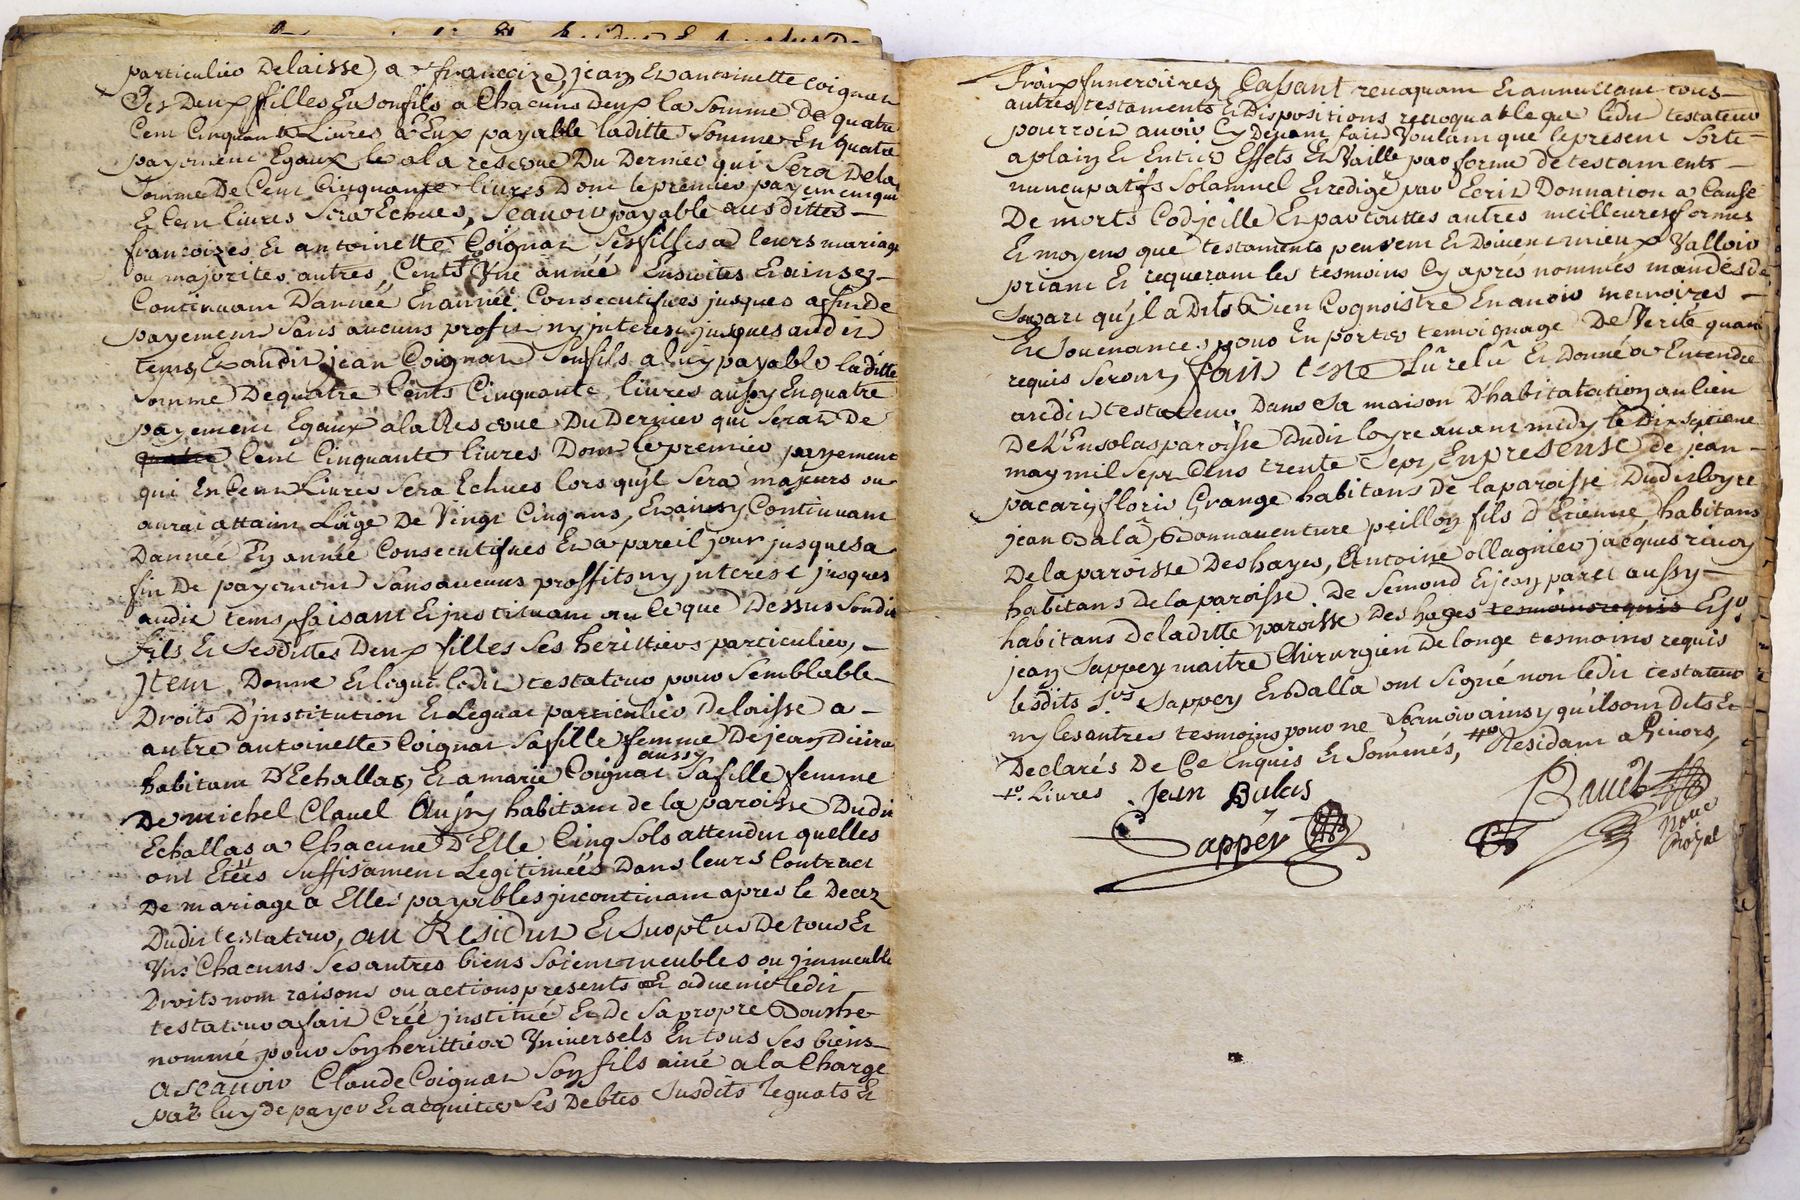 particulier delaisse, a francoize, jean Et antoinette coignat
Ses Deux filles Et son fils a Chacuns deux la Somme de quatre
Cent Cinquante Livres a Eux payable laditte Somme En quatre
payement Egaux le a la reserve Du Dernier qui Sera De la
Somme De Cent Cinquante livres Dont le premier payement qui
E Cent livres Sera Echues, Scauoir payable ausdittes
francoizes Et antoinette Coignat Ses filles a leurs mariage
ou majorites autres Cents Vne année Ensuites Et ainsy
Continuant D'année En année Consecutifues jusques a fin de
payement Sans aucuns profit ny jnterest jusques audit
tems, Et audit jean Coignat Son fils a luy payable laditte
Somme De quatre Cents Cinquante livres aussy En quatre
payement Egaux a la Reserue Du Dernier qui Serat De
quatre Cent Cinquante livres Dont le premier payement
qui En Cent Livres Sera Echues lors qu'jl Sera majeurs ou
aurat attaint L'âge De Vingt Cinq ans, Et ainsy Continuant
D'année En année Consecutifues Et a pareil jour jusques a
fin De payement Sans aucuns proffits ny jnterest jusques
audit tems, faisant Et jnstituant au Ce que Dessus Soudit
fils Et Sesdittes Deux filles Ses heritiers particulier,
jtem Donne Et legue ledit testateur pour Semblable
Droits D'jnstitution Et Leguat particulier delaisse a
autre antoinette Coignat Sa fille femme De jean Duivre
habitant D'Echallas, Et a marie Coignat aussy Sa fille femme
De michel Clauel Aussy habitant de la paroisse Dudit
Echallas a Chacune D'Elle Cinq Sols attendut quelles
ont Etées Suffisament Legitimées Dans leurs Contract
De mariage a Elles payables jncontinant apres le Decez
Dudit testateur, au Residut Et Surplus De tous Et
Vns Chacuns Ses autres biens Soient meubles ou jmmeuble
Droits nom raisons ou actions presents Et aduenir ledit
testateur a fait Créé jnstitué Et De Sa propre Bouche
nommé pour Son herittier Vniversels En tous Ses biens
a scauoir Claude Coignat Son fils ainé a la Charge
par luy de payer Et acquiter Ses Debtes Susdits leguats Et
fraix funeroires, Cassant reuoquant Et annullant tous
autres testaments Et Dispositions reuoquable que ledit testateur
pourroit auoir Cy Deuant fait Voulant que le present Sorte
a plain Et Entier Effets Et Vaille par forme de testaments
nuncupatifs Solamnel Et redigé par Ecrit Donnation a Cause
De morts Codjcille Et par touttes autres meilleures formes
Et moyens que testaments peuvent Et Doivent mieux Valloir
priant Et requerant les tesmoins Cy aprés nommés mandés de
Sa part qu'jl a Dits bien Cognoistre En auoir memoires
Et Souenance, pour En porter temoignage De Verité quant
requis Seront, fait testé Lû relû Et Donné a Entendre
audit testateur Dans Sa maison D'habitatation au lieu
De L'Ensolas paroisse dudit loyre auant midy le Dix septieme
may mil Sept Cens trente Sept, En presense de jean
pacari, floris Grange habitans De la paroisse Dudit loyre
jean Balâ, Bonnauenture peillon fils d'Etienne, habitans
De la paroisse Des hayes, Antoine ollagnier jacques
habitans De la paroisse De Semond Et jean paret aussy
habitans De laditte paroisse Des hayes tesmoins requis Et Sr.
jean Sappey maitre Chirurgien De longe tesmoins requis
lesdits Srs Sappey Et Balla ont Signé non ledit testateur
ny les autres tesmoins pour ne Scauoir ainsy qu'ils ont Dits Et
Declarés De Ce Enquis Et Sommés, Residant a Giuors,
Livres Jean Balas
Sappéy
Note
Royal